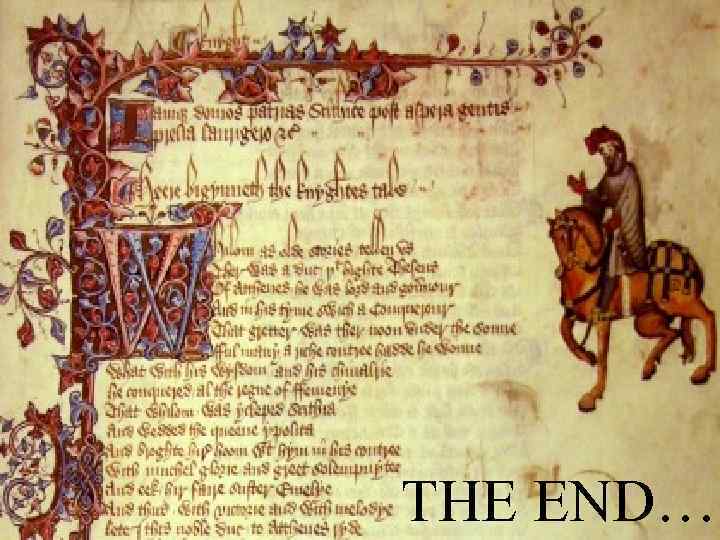 Iamqȝ domos patrias Scithice post aspera gentis
prelia laurigero ⁊c̃
Heere bigynneth the knyghtes tale
Whilom as olde stories tellen vs
Ther was a duc þt highte Theseus
Of Atthenes he was lord and gouernour
And in his tyme swich a Conquerour
That gretter was ther noon vnder the sonne
fful many a riche contree hadde he wonne
What with his wysdom and his chiualrye
he conquered al the regne of ffemenye
That whilom was ycleped Scithia
And wedded the queene ypolita
And broghte hir hoom with hym in his contree
With muchel glorie and greet solempnytee
And eek hir faire suster Emelye
And thus with victorie and with melodye
lete I this noble duc to Atthenes ryde
THE END…